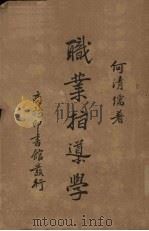 何清儒著
職業指導學
商務印書館發行